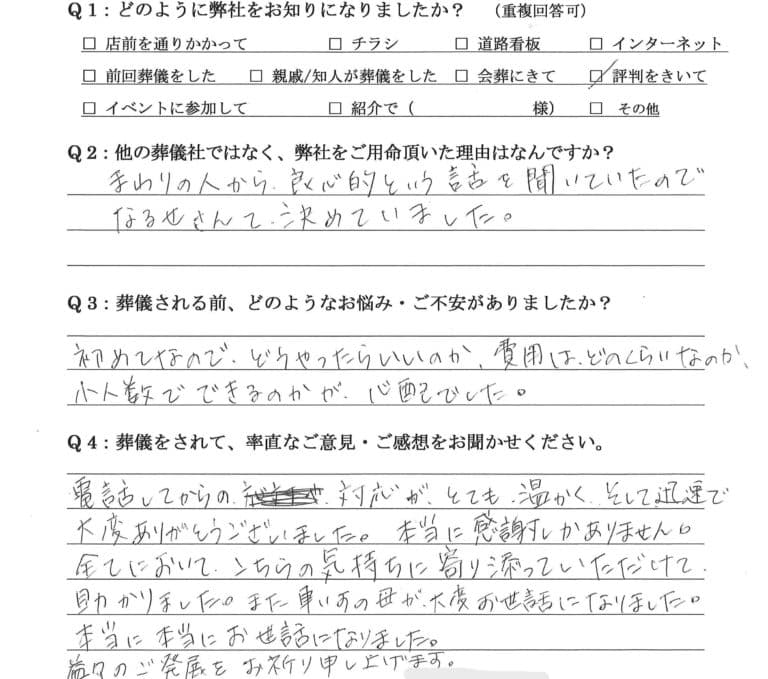 Q1：どのように弊社をお知りになりましたか？ （重複回答可）
□ 店前を通りかかって □ チラシ □ 道路看板 □ インターネット
□ 前回葬儀をした □ 親戚/知人が葬儀をした □ 会葬にきて ☑ 評判をきいて
□ イベントに参加して □ 紹介で（ 様） □ その他
Q2：他の葬儀社ではなく、弊社をご用命頂いた理由はなんですか？
まわりの人から、良心的という話を聞いていたので
なるせさんて、決めていました。
Q3：葬儀される前、どのようなお悩み・ご不安がありましたか？
初めてなので、どうやったらいいのか、費用は、どのくらいなのか、
少人数でできるのかが、心配でした。
Q4：葬儀をされて、率直なご意見・ご感想をお聞かせください。
電話してからの 対応が、とても、温かく、そして迅速で
大変ありがとうございました。本当に感謝しかありません。
全てにおいて、こちらの気持ちに寄り添っていただけて、
助かりました。また車いすの母が、大変お世話になりました。
本当に本当にお世話になりました。
益々のご発展をお祈り申し上げます。